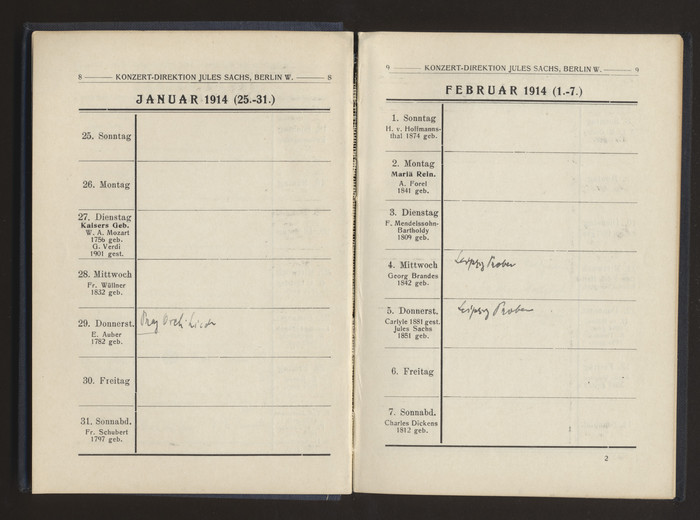 8 KONZERT-DIREKTION JULES SACHS, BERLIN W. 8
JANUAR 1914 (25.-31.)
25. Sonntag
26. Montag
27. Dienstag
Kaisers Geb.
W. A. Mozart
1756 geb.
G. Verdi
1901 gest.
28. Mittwoch
Fr. Wüllner
1832 geb.
29. Donnerst.
E. Auber
1782 geb.
Prag Orch Lieder
30. Freitag
31. Sonnabd.
Fr. Schubert
1797 geb.
9 KONZERT-DIREKTION JULES SACHS, BERLIN W. 9
FEBRUAR 1914 (1.-7.)
1. Sonntag
H. v. Hoffmanns-
thal 1874 geb.
2. Montag
Mariä Rein.
A. Forel
1841 geb.
3. Dienstag
F. Mendelssohn-
Bartholdy
1809 geb.
4. Mittwoch
Georg Brandes
1842 geb.
Leipzig Proben
5. Donnerst.
Carlyle 1881 gest.
Jules Sachs
1851 geb.
Leipzig Proben
6. Freitag
7. Sonnabd.
Charles Dickens
1812 geb.
2